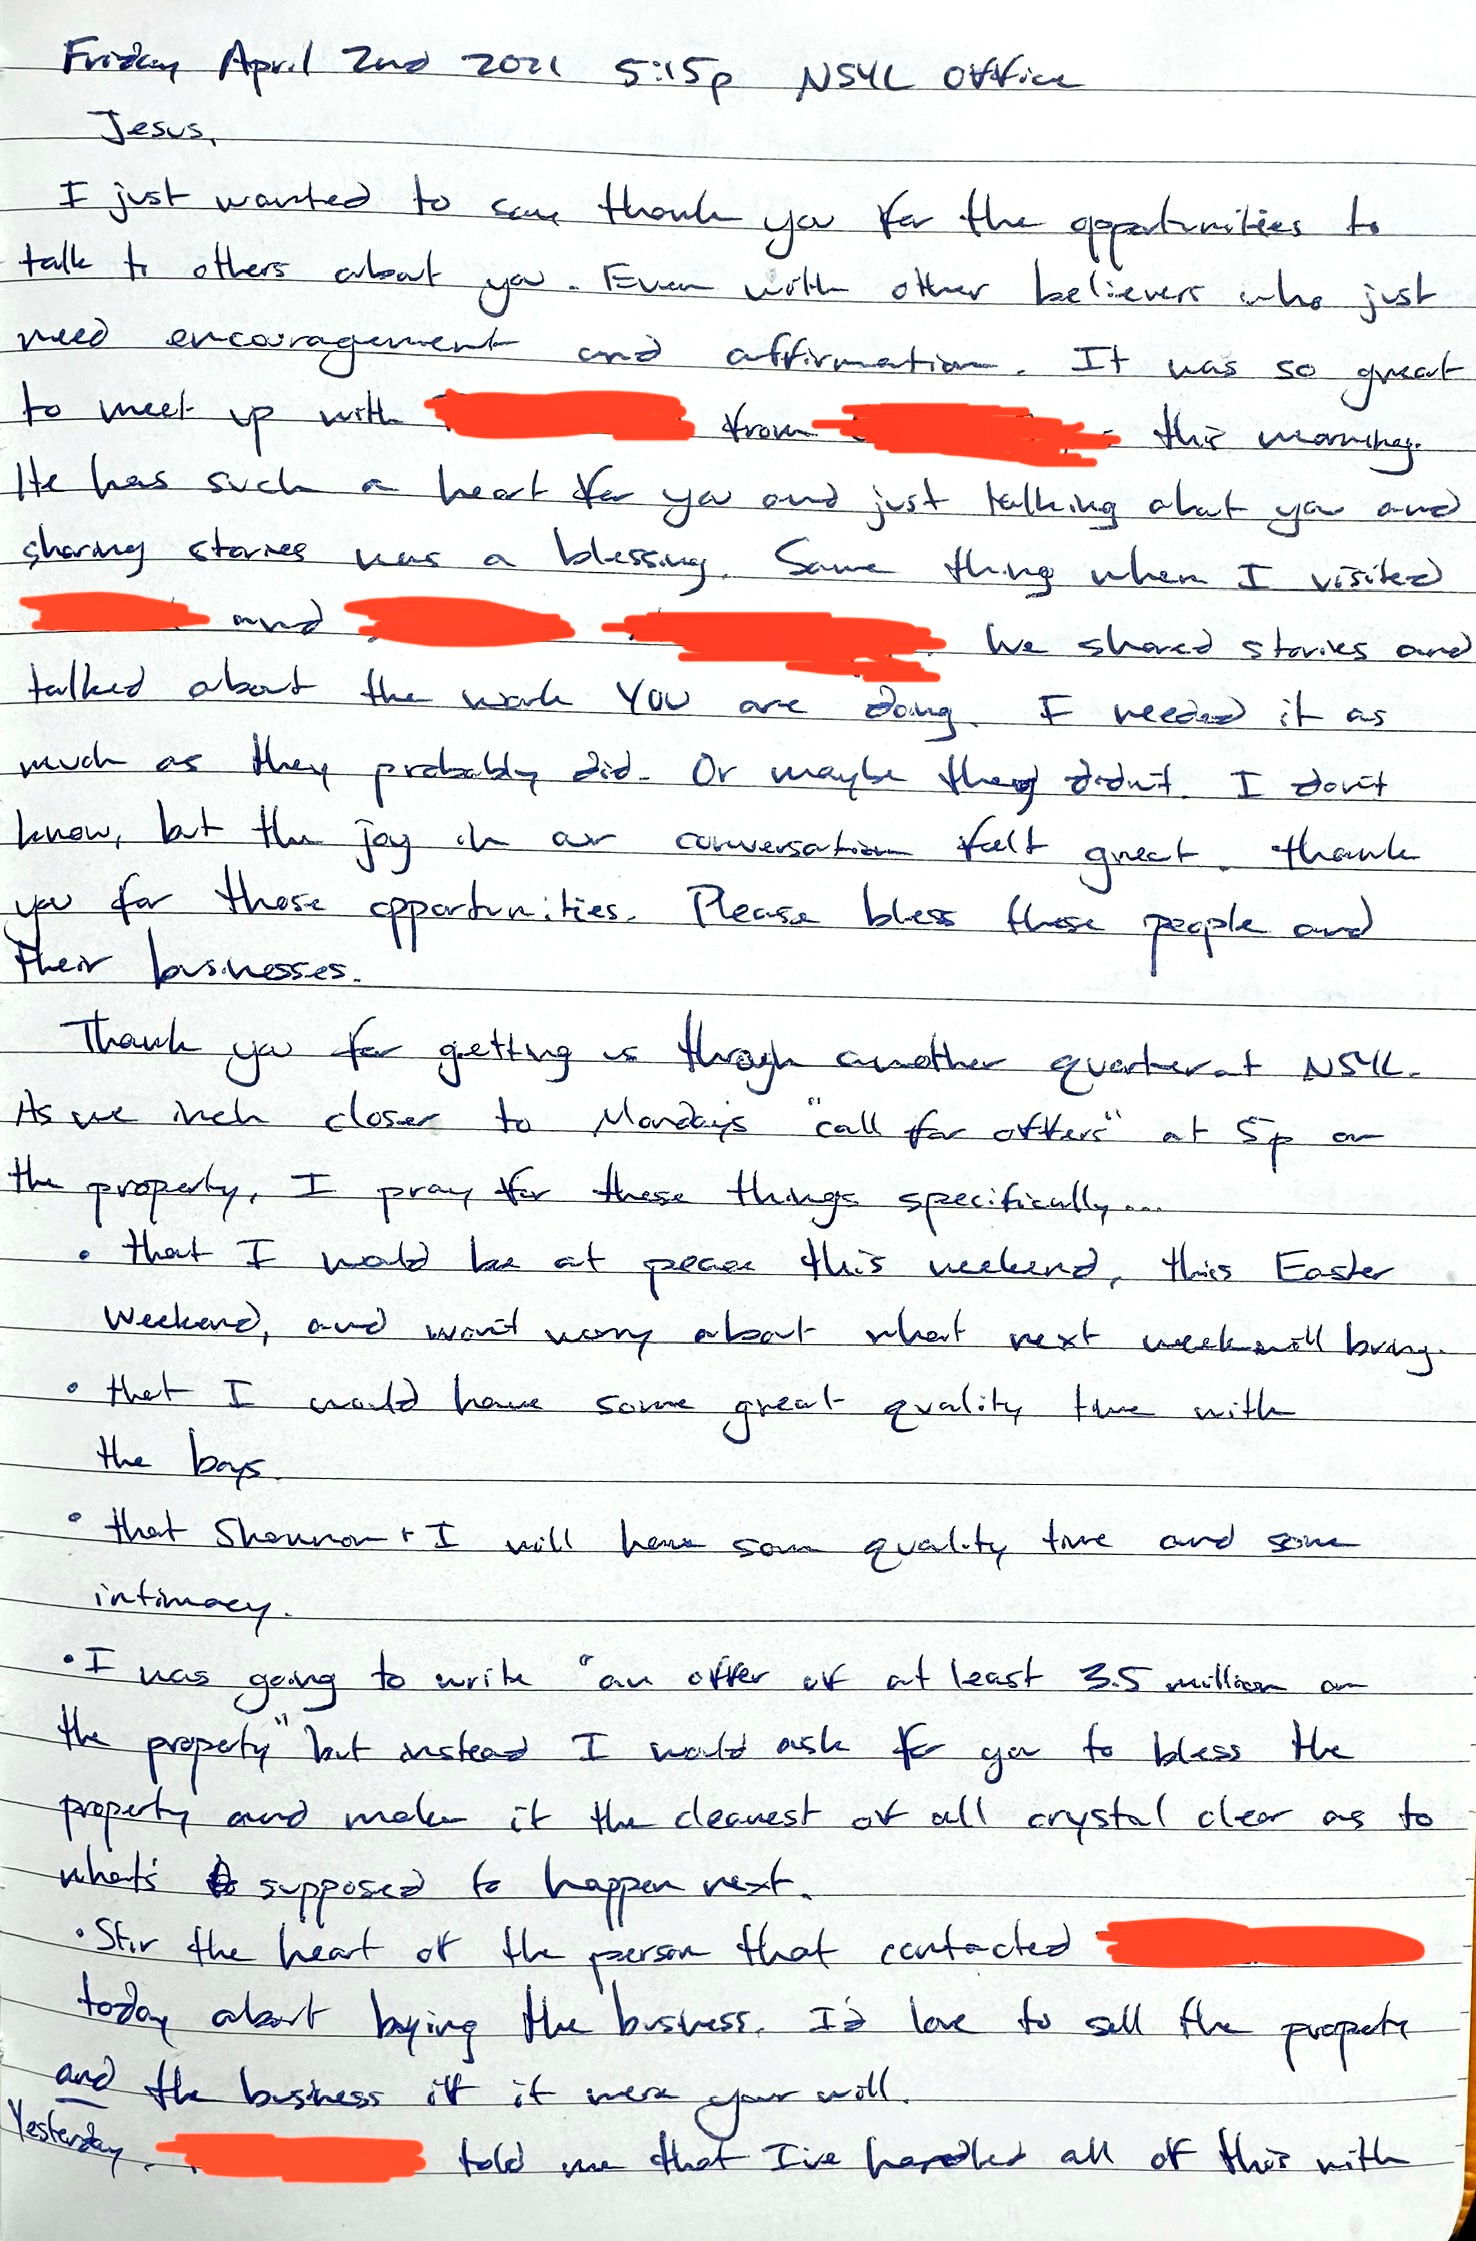 Friday April 2nd 2021 5:15p NSYL Office
Jesus,
I just wanted to say thank you for the opportunities to
talk to others about you. Even with other believers who just
need encouragement and affirmation. It was so great
to meet up with from this morning.
He has such a heart for you and just talking about you and
sharing stories was a blessing. Same thing when I visited
and . We shared stories and
talked about the work YOU are doing. I needed it as
much as they probably did. Or maybe they didn't. I don't
know, but the joy in our conversation felt great. Thank
you for those opportunities. Please bless those people and
their businesses.
Thank you for getting us through another quarter at NSYL.
As we inch closer to Monday's "call for offers" at 5p on
the property, I pray for these things specifically...
• that I would be at peace this weekend, this Easter
Weekend, and won't worry about what next week will bring.
• that I would have some great quality time with
the boys.
• that Shannon + I will have some quality time and some
intimacy.
• I was going to write "an offer of at least 3.5 million on
the property" but instead I would ask for you to bless the
property and make it the cleanest of all crystal clear as to
what's supposed to happen next.
• Stir the heart of the person that contacted
today about buying the business. I'd love to sell the property
and the business if it were your will.
Yesterday, told me that I've handled all of this with